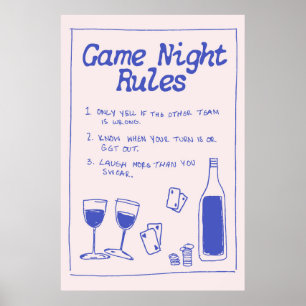 Game Night
Rules
1. ONLY YELL IF THE OTHER TEAM
IS WRONG.
2. KNOW WHEN YOUR TURN IS OR
GET OUT.
3. LAUGH MORE THAN YOU
SWEAR.